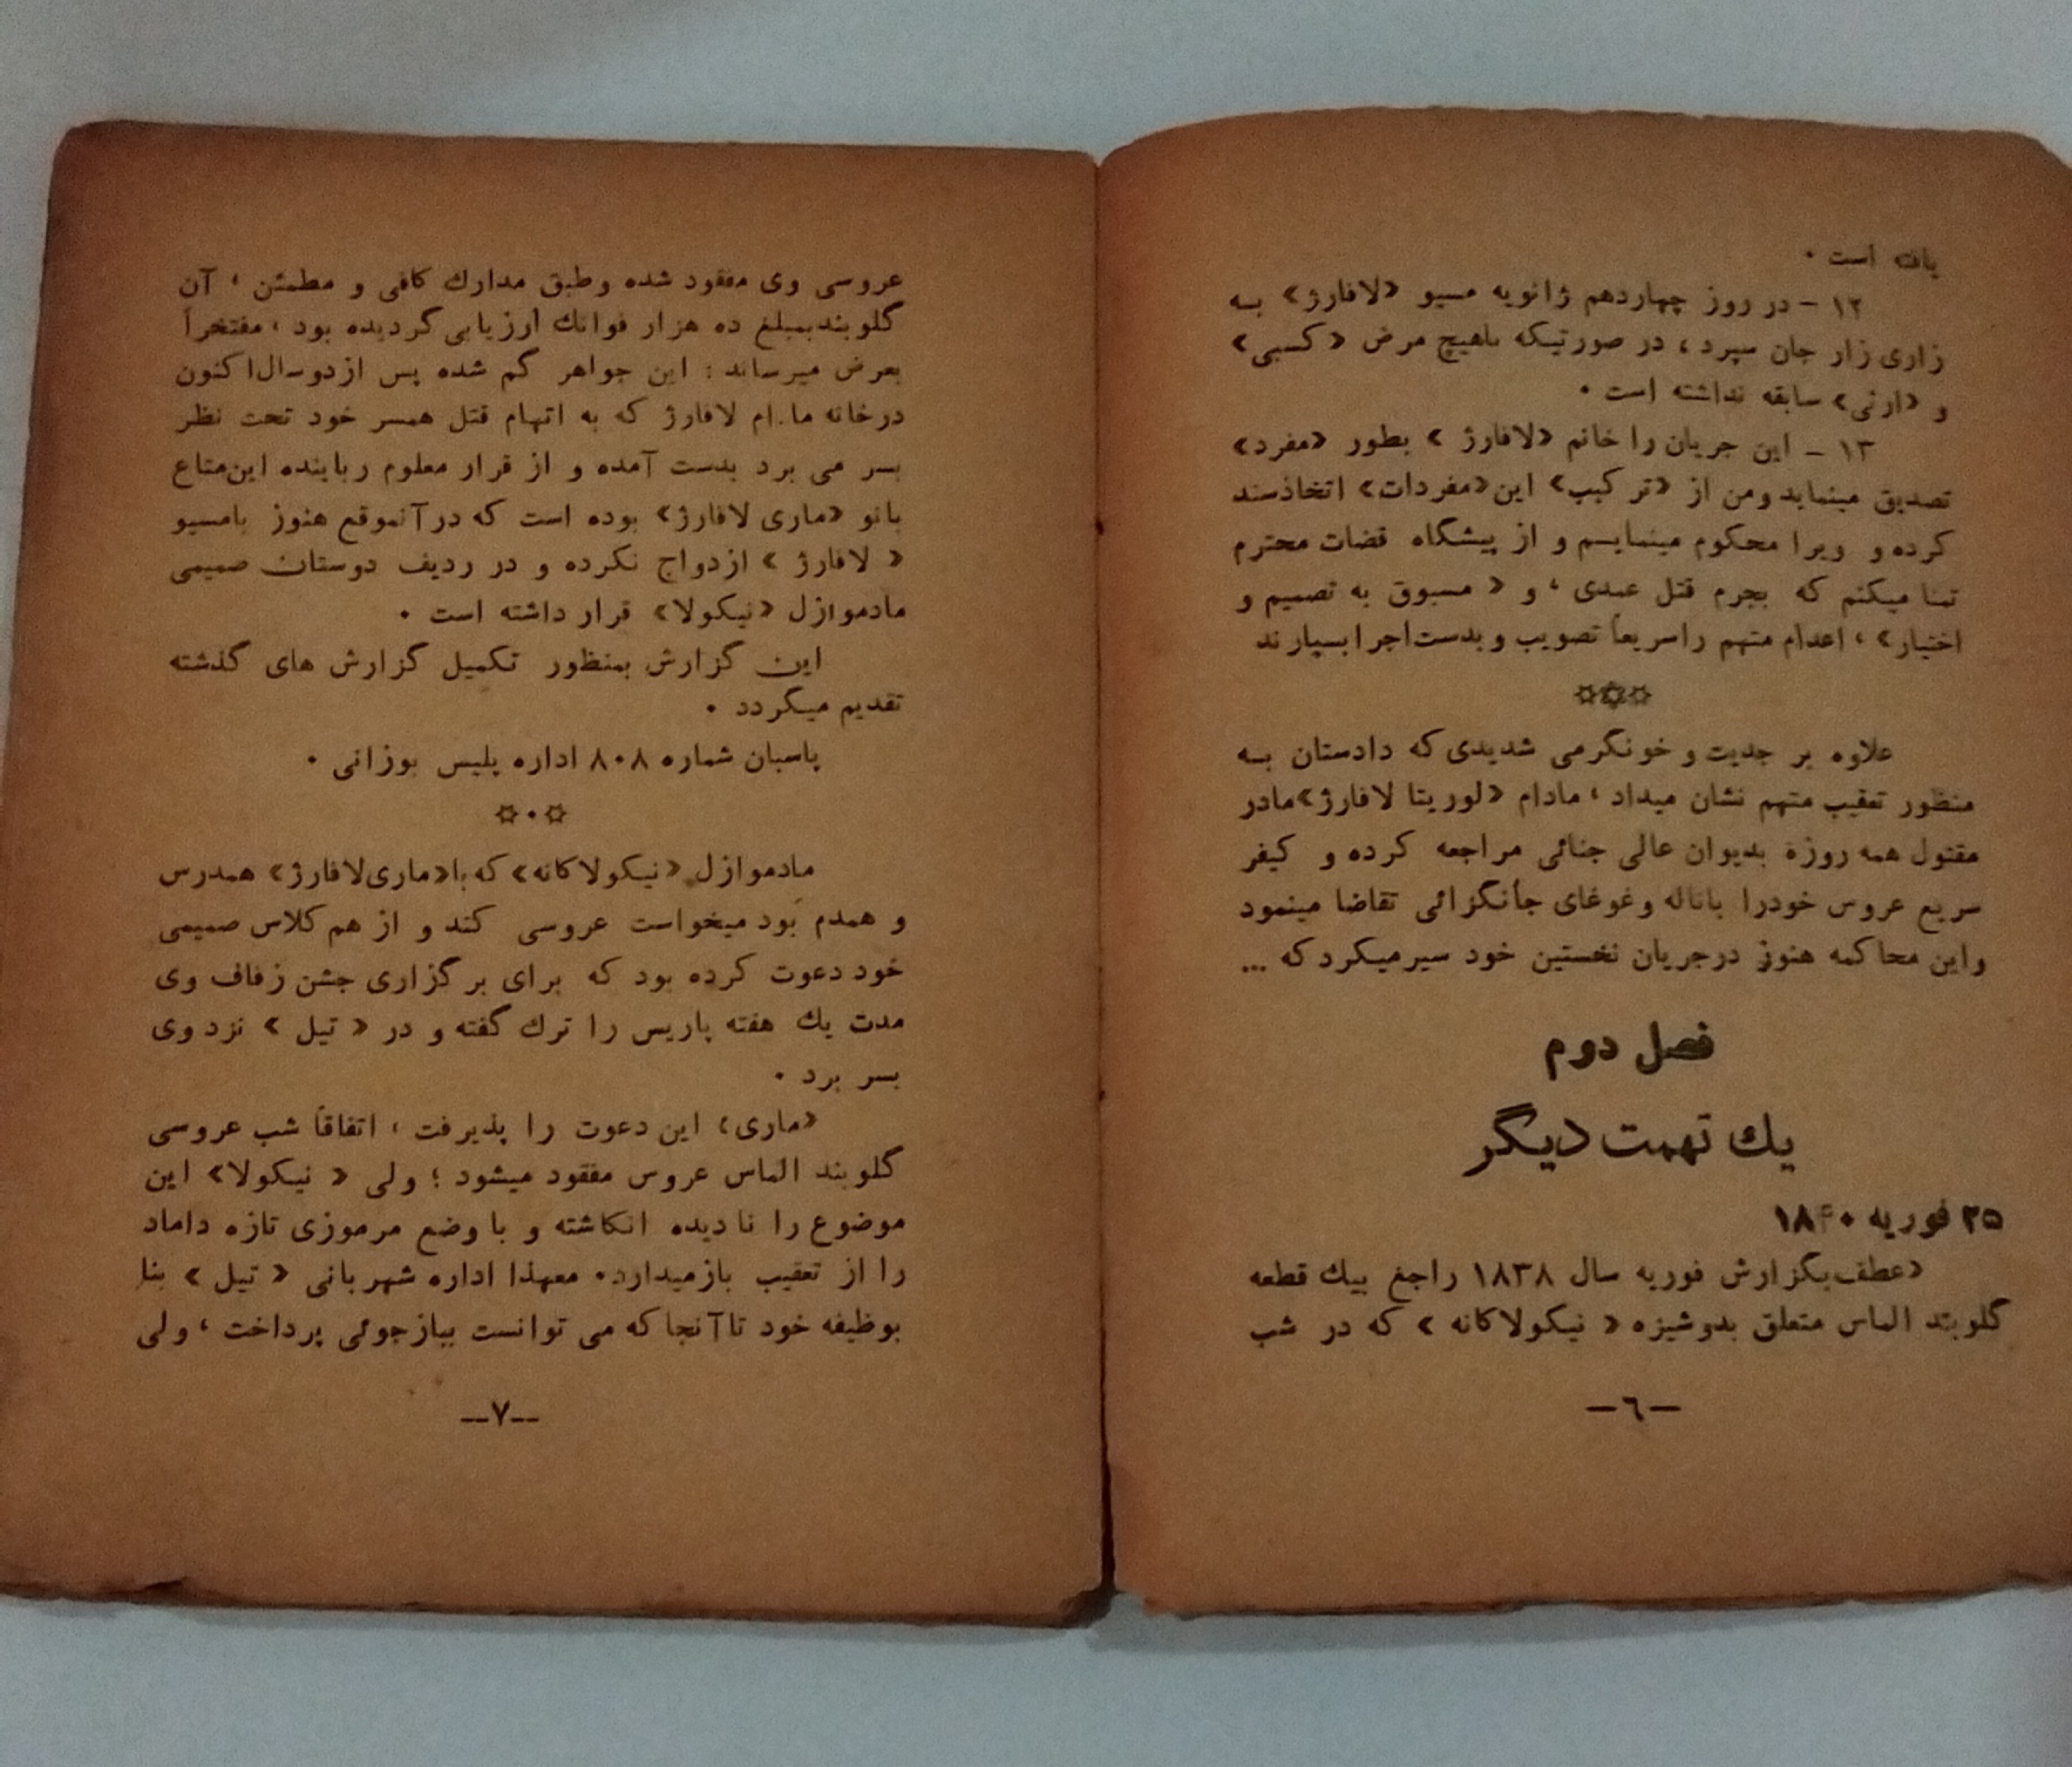 یافته است .
۱۲ - در روز چهاردهم ژانویه مسیو «لافارژ» به
زاری زار جان سپرد ، در صورتیکه باهیچ مرض «کسبی»
و «ارثی» سابقه نداشته است .
۱۳ - این جریان را خانم «لافارژ» بطور «مفرد»
تصدیق مینماید ومن از «ترکیب» این «مفردات» اتخاذسند
کرده و ویرا محکوم مینمایم و از پیشگاه قضات محترم
تمنا میکنم که بجرم قتل عمدی ، و « مسبوق به تصمیم و
اختیار» ، اعدام متهم راسریعاً تصویب و بدست اجرا بسپارند
✡✡✡
علاوه بر جدیت و خونگرمی شدیدی که دادستان به
منظور تعقیب متهم نشان میداد ، مادام «لوریتا لافارژ» مادر
مقتول همه روزه بدیوان عالی جنائی مراجعه کرده و کیفر
سریع عروس خودرا باناله وغوغای جانگزائی تقاضا مینمود
واین محاکمه هنوز درجریان نخستین خود سیرمیکرد که ...
فصل دوم
یك تهمت دیگر
۲۵ فوریه ۱۸۴۰
«عطف بگزارش فوریه سال ۱۸۳۸ راجع بیك قطعه
گلوبند الماس متعلق بدوشیزه « نیکولاکانه » که در شب
—٦—
عروسی وی مفقود شده وطبق مدارك کافی و مطمئن ، آن
گلوبندبمبلغ ده هزار فوانك ارزیابی گردیده بود ، مفتخراً
بعرض میرساند : این جواهر گم شده پس ازدوسال اکنون
درخانه مادام لافارژ که به اتهام قتل همسر خود تحت نظر
بسر می برد بدست آمده و از قرار معلوم رباینده این متاع
بانو «ماری لافارژ» بوده است که درآنموقع هنوز بامسیو
« لافارژ » ازدواج نکرده و در ردیف دوستان صمیمی
مادموازل «نیکولا» قرار داشته است .
این گزارش بمنظور تکمیل گزارش های گذشته
تقدیم میگردد .
پاسبان شماره ۸۰۸ اداره پلیس بوزانی .
✡٠✡
مادموازل «نیکولاکانه» که با «ماری لافارژ» همدرس
و همدم بود میخواست عروسی کند و از هم کلاس صمیمی
خود دعوت کرده بود که برای برگزاری جشن زفاف وی
مدت یك هفته پاریس را ترك گفته و در « تیل » نزد وی
بسر برد .
«ماری» این دعوت را پذیرفت ، اتفاقاً شب عروسی
گلوبند الماس عروس مفقود میشود ؛ ولی « نیکولا» این
موضوع را نادیده انکاشته و با وضع مرموزی تازه داماد
را از تعقیب بازمیدارد. معهذا اداره شهربانی « تیل » بنا
بوظیفه خود تاآنجا که می توانست ببازجوئی پرداخت ، ولی
—۷—